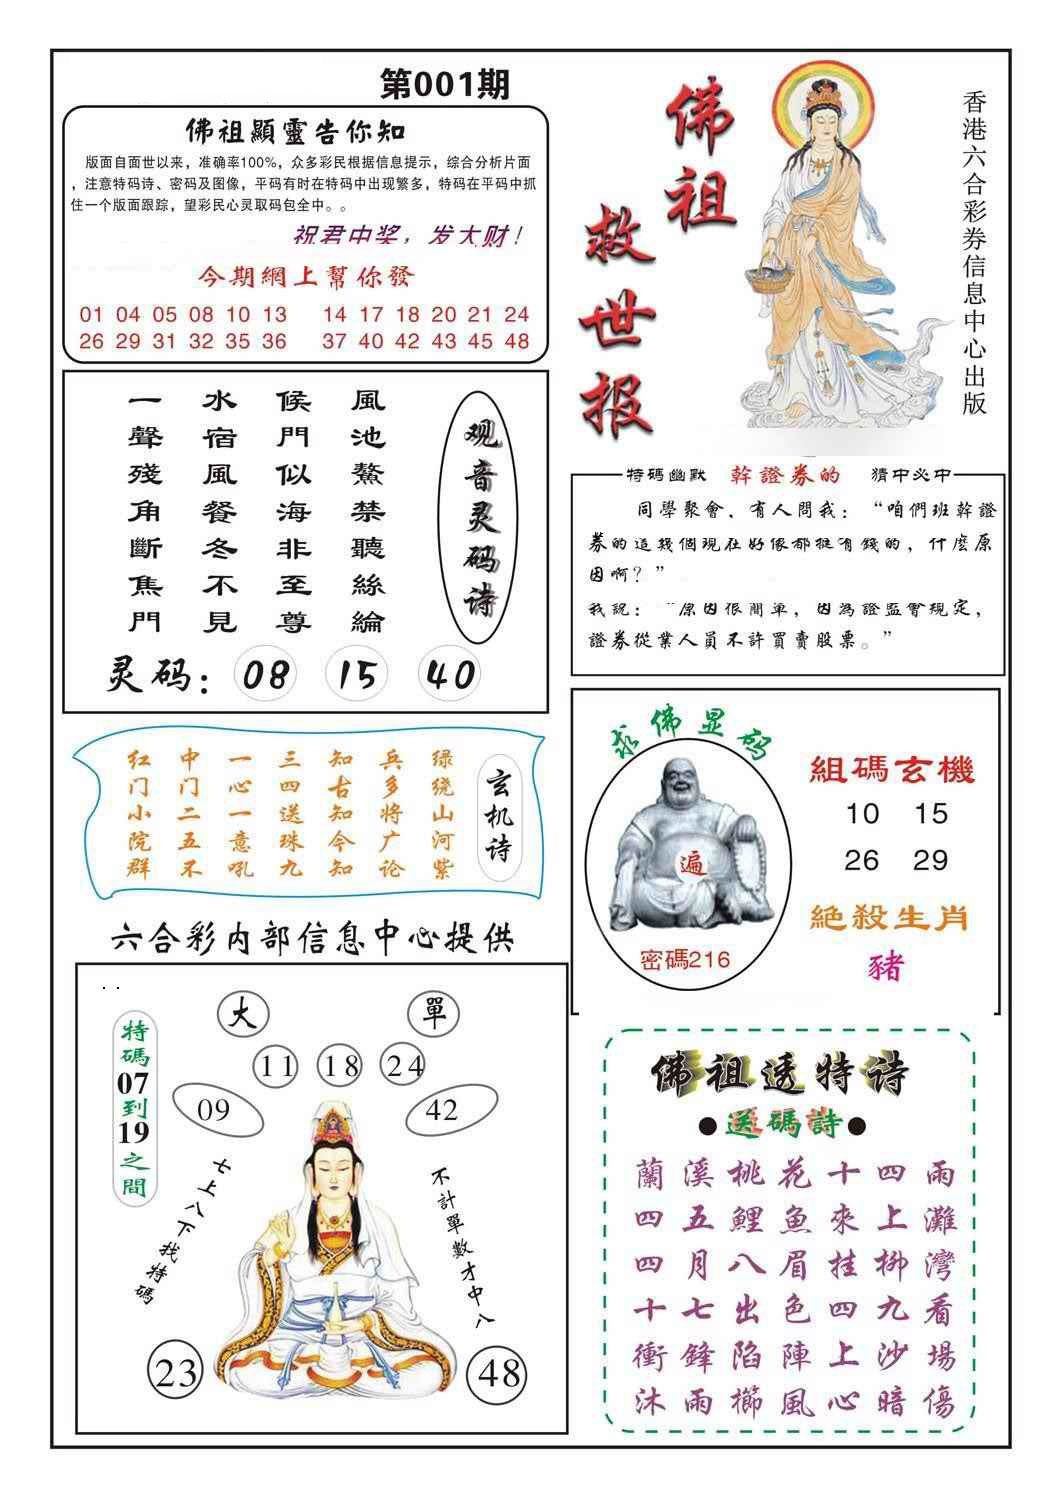 第001期
佛祖顯靈告你知
版面自面世以来，准确率100%，众多彩民根据信息提示，综合分析片面
，注意特码诗、密码及图像，平码有时在特码中出现繁多，特码在平码中抓
住一个版面跟踪，望彩民心灵取码包全中。。
祝君中奖，发大财！
今期網上幫你發
01 04 05 08 10 13 14 17 18 20 21 24
26 29 31 32 35 36 37 40 42 43 45 48
佛祖
救世报
香港六合彩券信息中心出版
观音灵码诗
風池鰲禁聽絲綸
候門似海非至尊
水宿風餐冬不見
一聲殘角斷焦門
灵码：08 15 40
特碼幽默 幹證券的 猜中必中
同學聚會，有人問我：“咱們班幹證
券的這幾個現在好像都挺有錢的，什麽原
因啊？”
我説：“原因很簡單，因為證監會規定，
證券從業人員不許買賣股票。”
求佛显码
遍
密碼216
組碼玄機
10 15
26 29
絕殺生肖
豬
玄机诗
绿绕山河紫
兵多将广论
知古知今知
三四送珠九
一心一意吼
中门二五不
红门小院群
六合彩内部信息中心提供
特碼07到19之間
大
單
11 18 24
09
42
七上八下找特碼
不計單數才中八
23
48
佛祖透特诗
●送碼詩●
蘭溪桃花十四雨
四五鯉魚來上灘
四月八眉挂柳灣
十七出色四九看
衝鋒陷陣上沙場
沐雨櫛風心暗傷